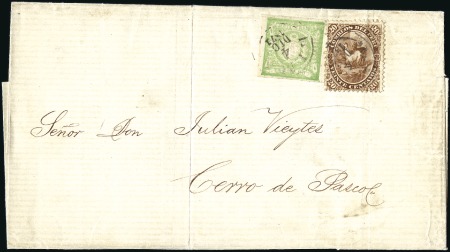 Señor Don Julian Vieytes
Cerro de Pasco